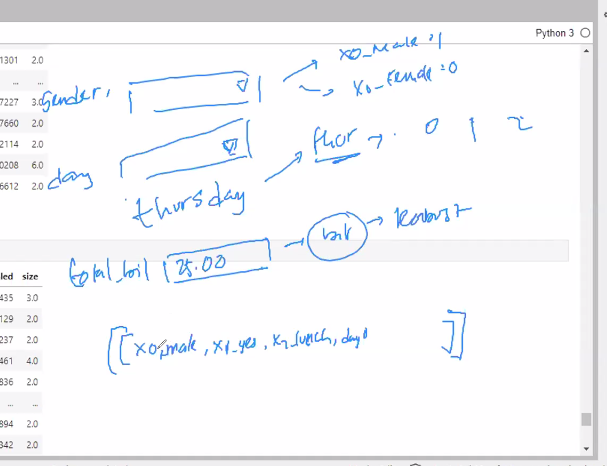 Python 3
1301 2.0
... ...
7227 3.0
7660 2.0
2114 2.0
0208 6.0
6612 2.0
gender,
x0_male=1
x0_female=0
day
thursday
thur → 0 1 2
total_bill 25.00
→ Robust
led size
435 3.0
129 2.0
237 2.0
461 4.0
836 2.0
... ...
894 2.0
342 2.0
[[x0_male, x1_yes, x2_lunch, day0 ]]